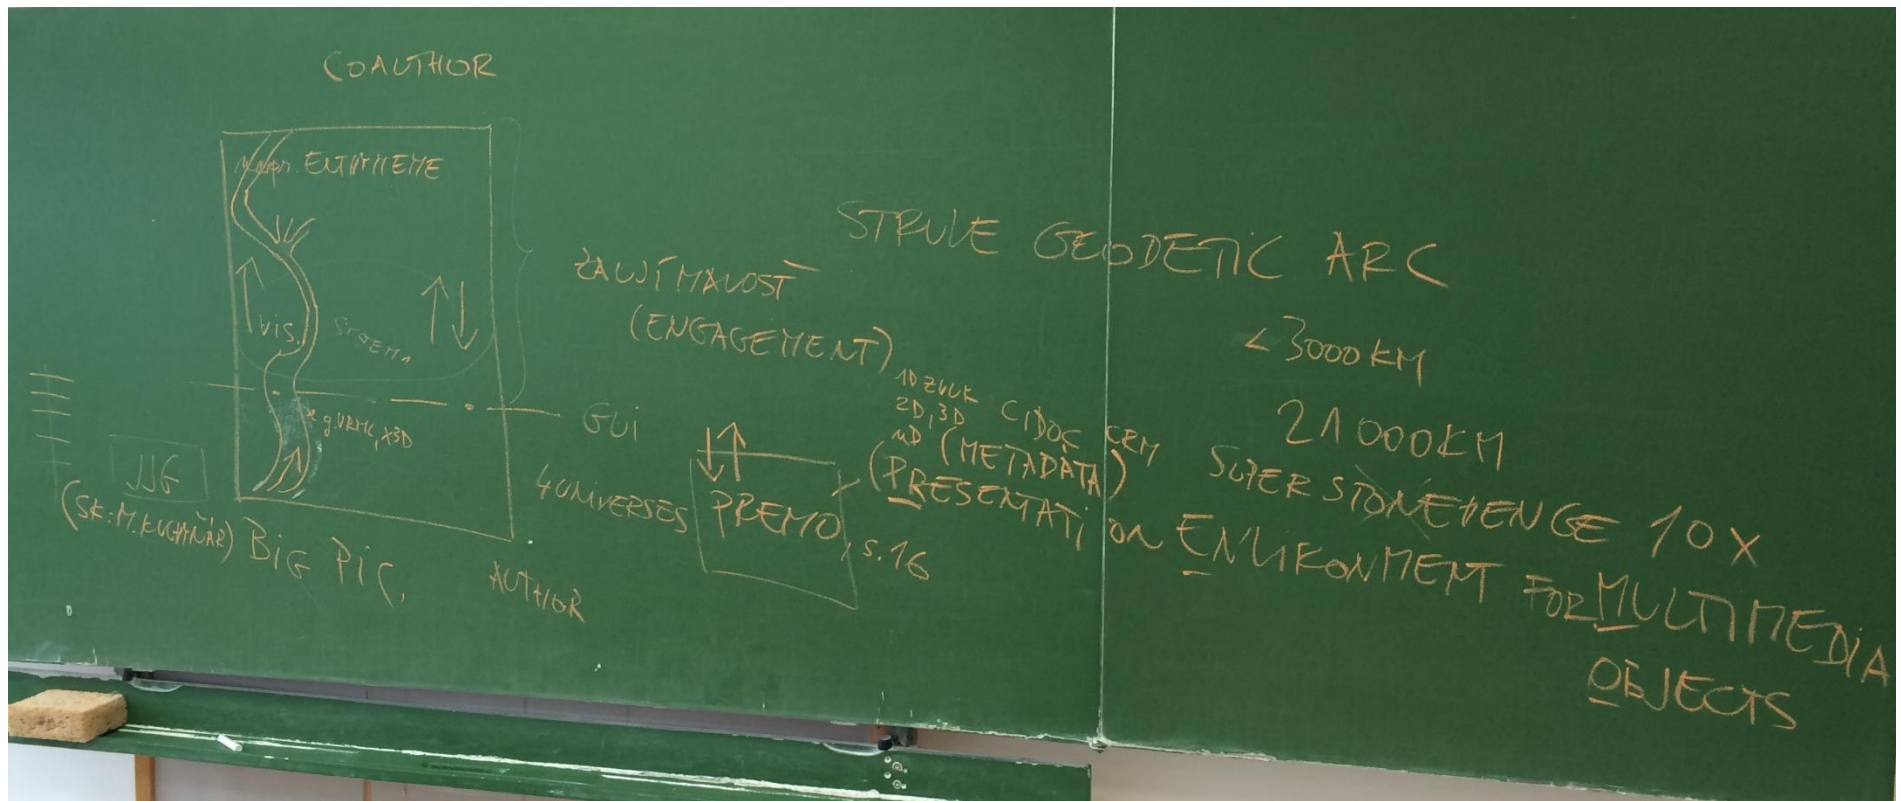 COAUTHOR
ENTHYMEME
VIS.
e.g. VRML, X3D
GUI
JJG
BIG PIC.
AUTHOR
ZAUJÍMAVOSŤ
(ENGAGEMENT)
4 UNIVERSES
PREMO, s. 16
1D ZVUK
2D, 3D
nD
CIDOC CRM
(METADÁTA)
(PRESENTATION ENVIRONMENT FOR MULTIMEDIA
OBJECTS
STRUVE GEODETIC ARC
< 3000 KM
21 000 KM
SUPER STONEHENGE 10 X